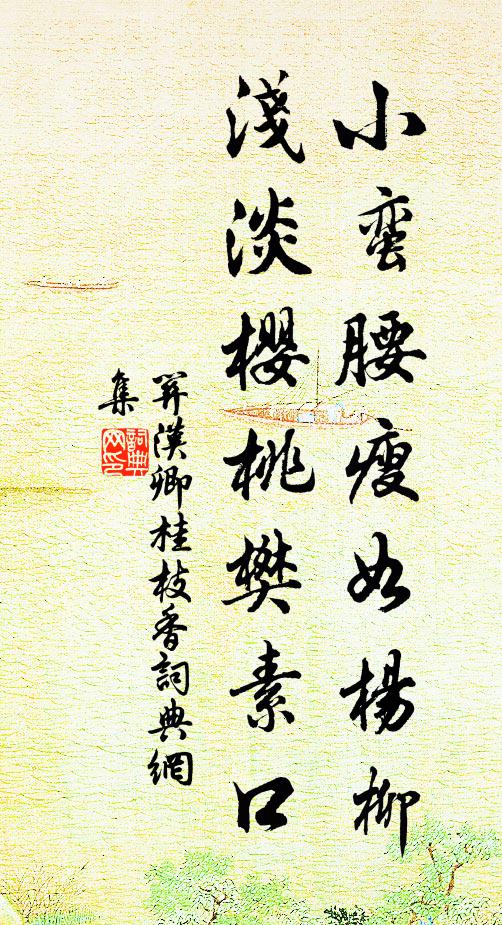 小蛮腰瘦如楊柳
淺淡櫻桃樊素口
関漢卿桂枝香詞典網
集
詞典
网印